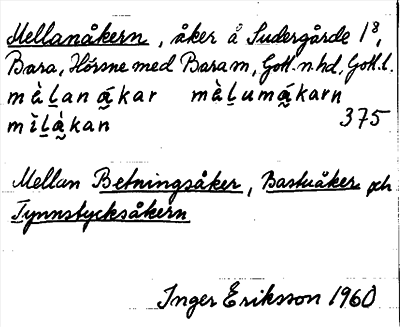 Mellanåkern, åker å Sudergårde 1⁸,
Bara, Hörsne med Bara sn, Gotl. n hd, Gotl. l.
mὰḷanákar mὰḷumákarn
mìḷὰkan 375
Mellan Betningsåker, Bastuåker och
Tynnstycksåkern
Inger Eriksson 1960